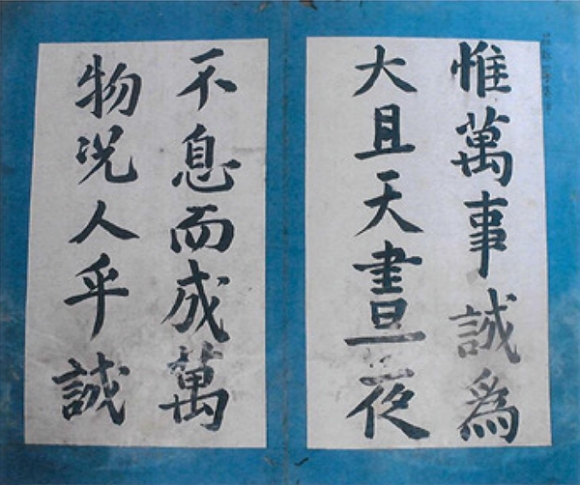 惟萬事誠為
大且天晝夜
不息而成萬
物况人乎誠